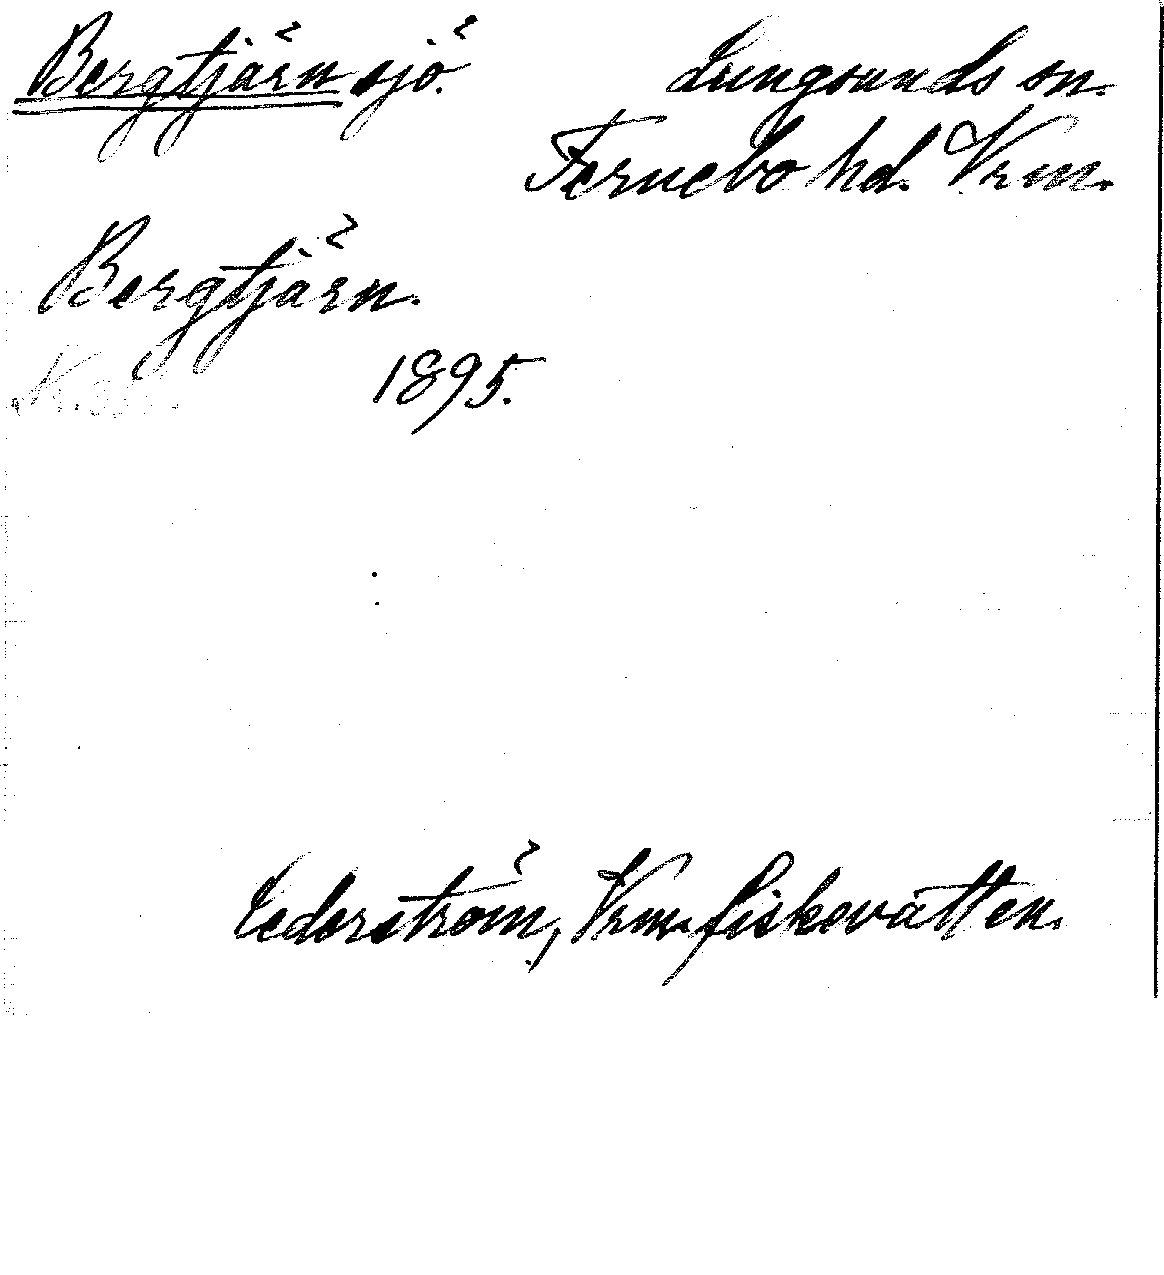 Bergtjärn sjö. Lungsunds sn.
Fernebo hd. Vrm.
Bergtjärn.
1895.
Cederström, Vrm. fiskevatten.